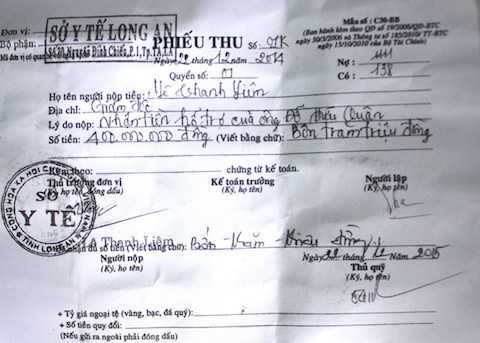 Đơn vị: SỞ Y TẾ LONG AN
Mẫu số: C30-BB
Bộ phận: Số 70, Nguyễn Đình Chiểu, P.1, Tp.TA.LA
(Ban hành kèm theo QĐ số 19/2006/QĐ-BTC
ngày 30/3/2006 và Thông tư số 185/2010/TT-BTC
ngày 15/10/2010 của Bộ Tài Chính)
PHIẾU THU Số:
Mã đơn vị có quan
Ngày tháng 12 năm
Nợ:
Quyển số: 01
Có: 138
Họ tên người nộp tiền: Lê Thanh Liêm
Địa chỉ: Giám đốc
Lý do nộp: Nhận tiền hổ trợ của ông Đỗ Hữu Quận
Số tiền: 400.000.000 đồng (Viết bằng chữ): Bốn trăm triệu đồng
Kèm theo: chứng từ kế toán.
Thủ trưởng đơn vị Kế toán trưởng Người lập
(Ký, họ tên, đóng dấu) (Ký, họ tên) (Ký, họ tên)
CỘNG HÒA XÃ HỘI CHỦ NGHĨA VIỆT NAM
SỞ
Y TẾ
TỈNH LONG AN
Lê Thanh Liêm
đủ số tiền (Viết bằng chữ): Bốn trăm triệu đồng
Ngày tháng năm 2015
Người nộp Thủ quỹ
(Ký, họ tên) (Ký, họ tên)
+ Tỷ giá ngoại tệ (vàng, bạc, đá quý):
+ Số tiền quy đổi:
(Nếu gửi ra ngoài phải đóng dấu)